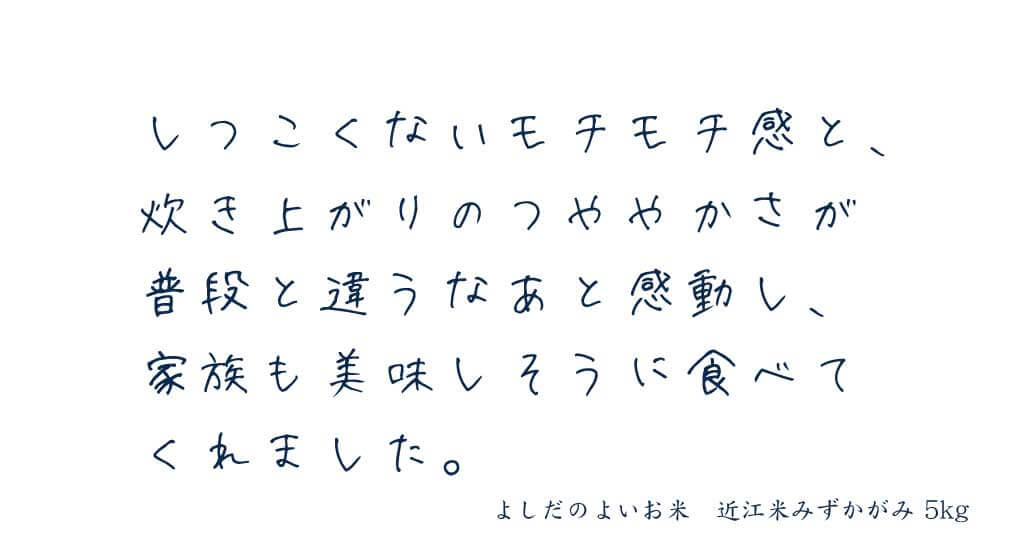 しつこくないモチモチ感と、
炊き上がりのつややかさが
普段と違うなあと感動し、
家族も美味しそうに食べて
くれました。
よしだのよいお米　近江米みずかがみ 5kg